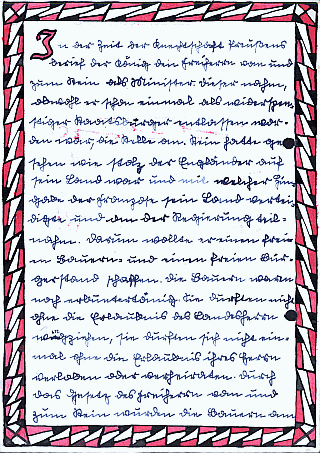 In der Zeit der Knechtschaft Preußens
berief der König den Freiherrn vom und
zum Stein als Minister. Dieser nahm,
obwohl er schon einmal als widerspen-
stiger Staatsbürger entlassen wor-
den war, die Stelle an. Stein hatte ge
sehen wie stolz der Engländer auf
sein Land war und mit welcher Hin-
gabe der Franzose sein Land vertei-
digte und an der Regierung teil-
nahm. Darum wollte er einen freien
Bauern- und einen freien Bür-
gerstand schaffen. Die Bauern waren
noch erbuntertänig. Sie durften nicht
ohne die Erlaubnis des Landesherrn
wegziehen, sie durften sich nicht ein-
mal ohne die Erlaubnis ihres Herrn
verloben oder verheiraten. Durch
das Gesetz des Freiherrn vom und
zum Stein wurden die Bauern am